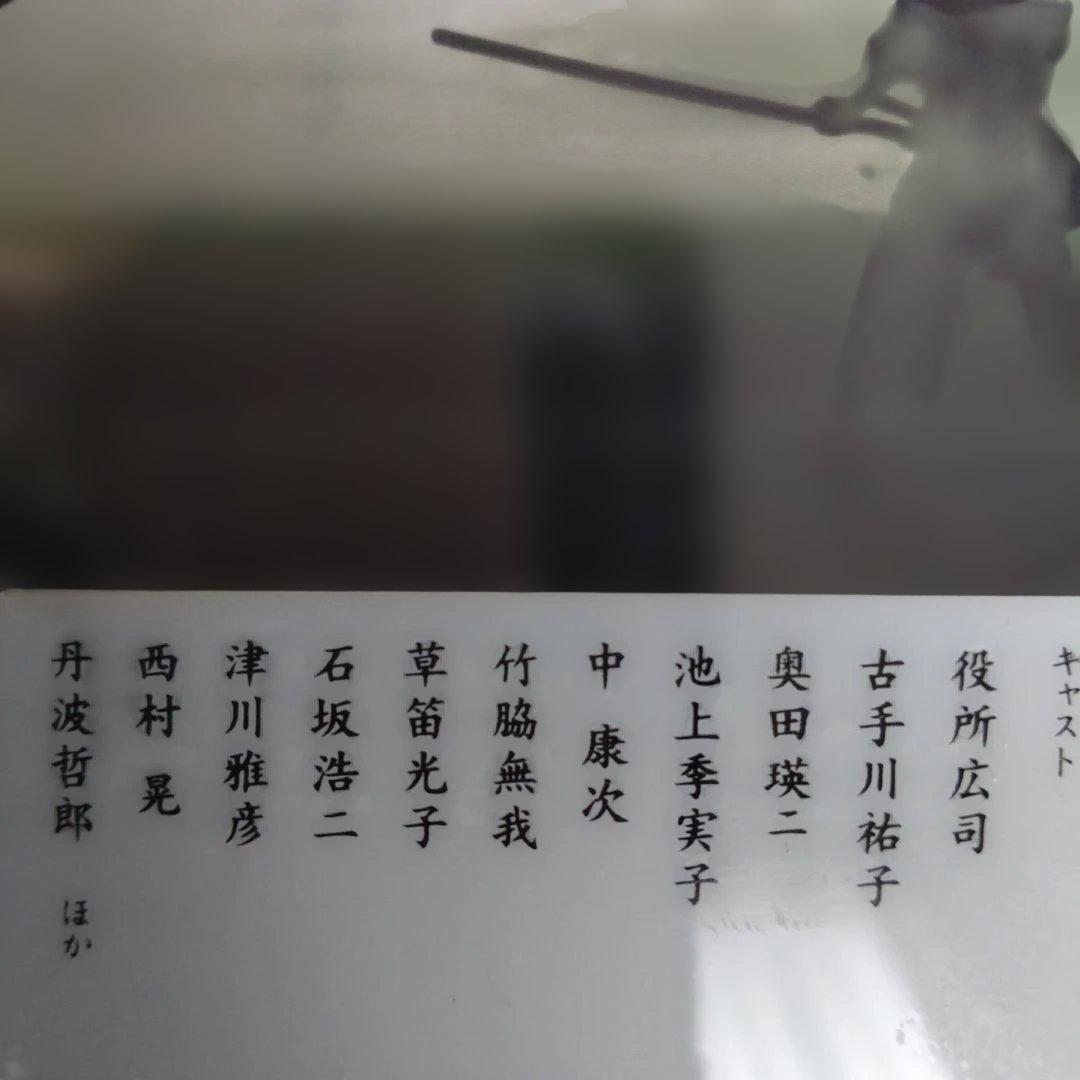 キャスト
役所広司
古手川祐子
奥田瑛二
池上季実子
中 康次
竹脇無我
草笛光子
石坂浩二
津川雅彦
西村 晃
丹波哲郎 ほか